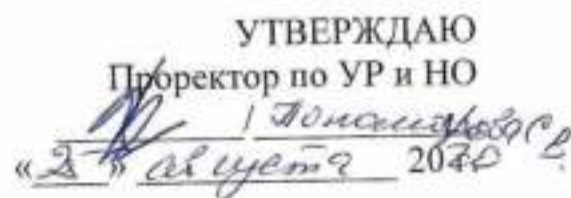 УТВЕРЖДАЮ
Проректор по УР и НО
/ Пономарева С.В.
« » августа 2020